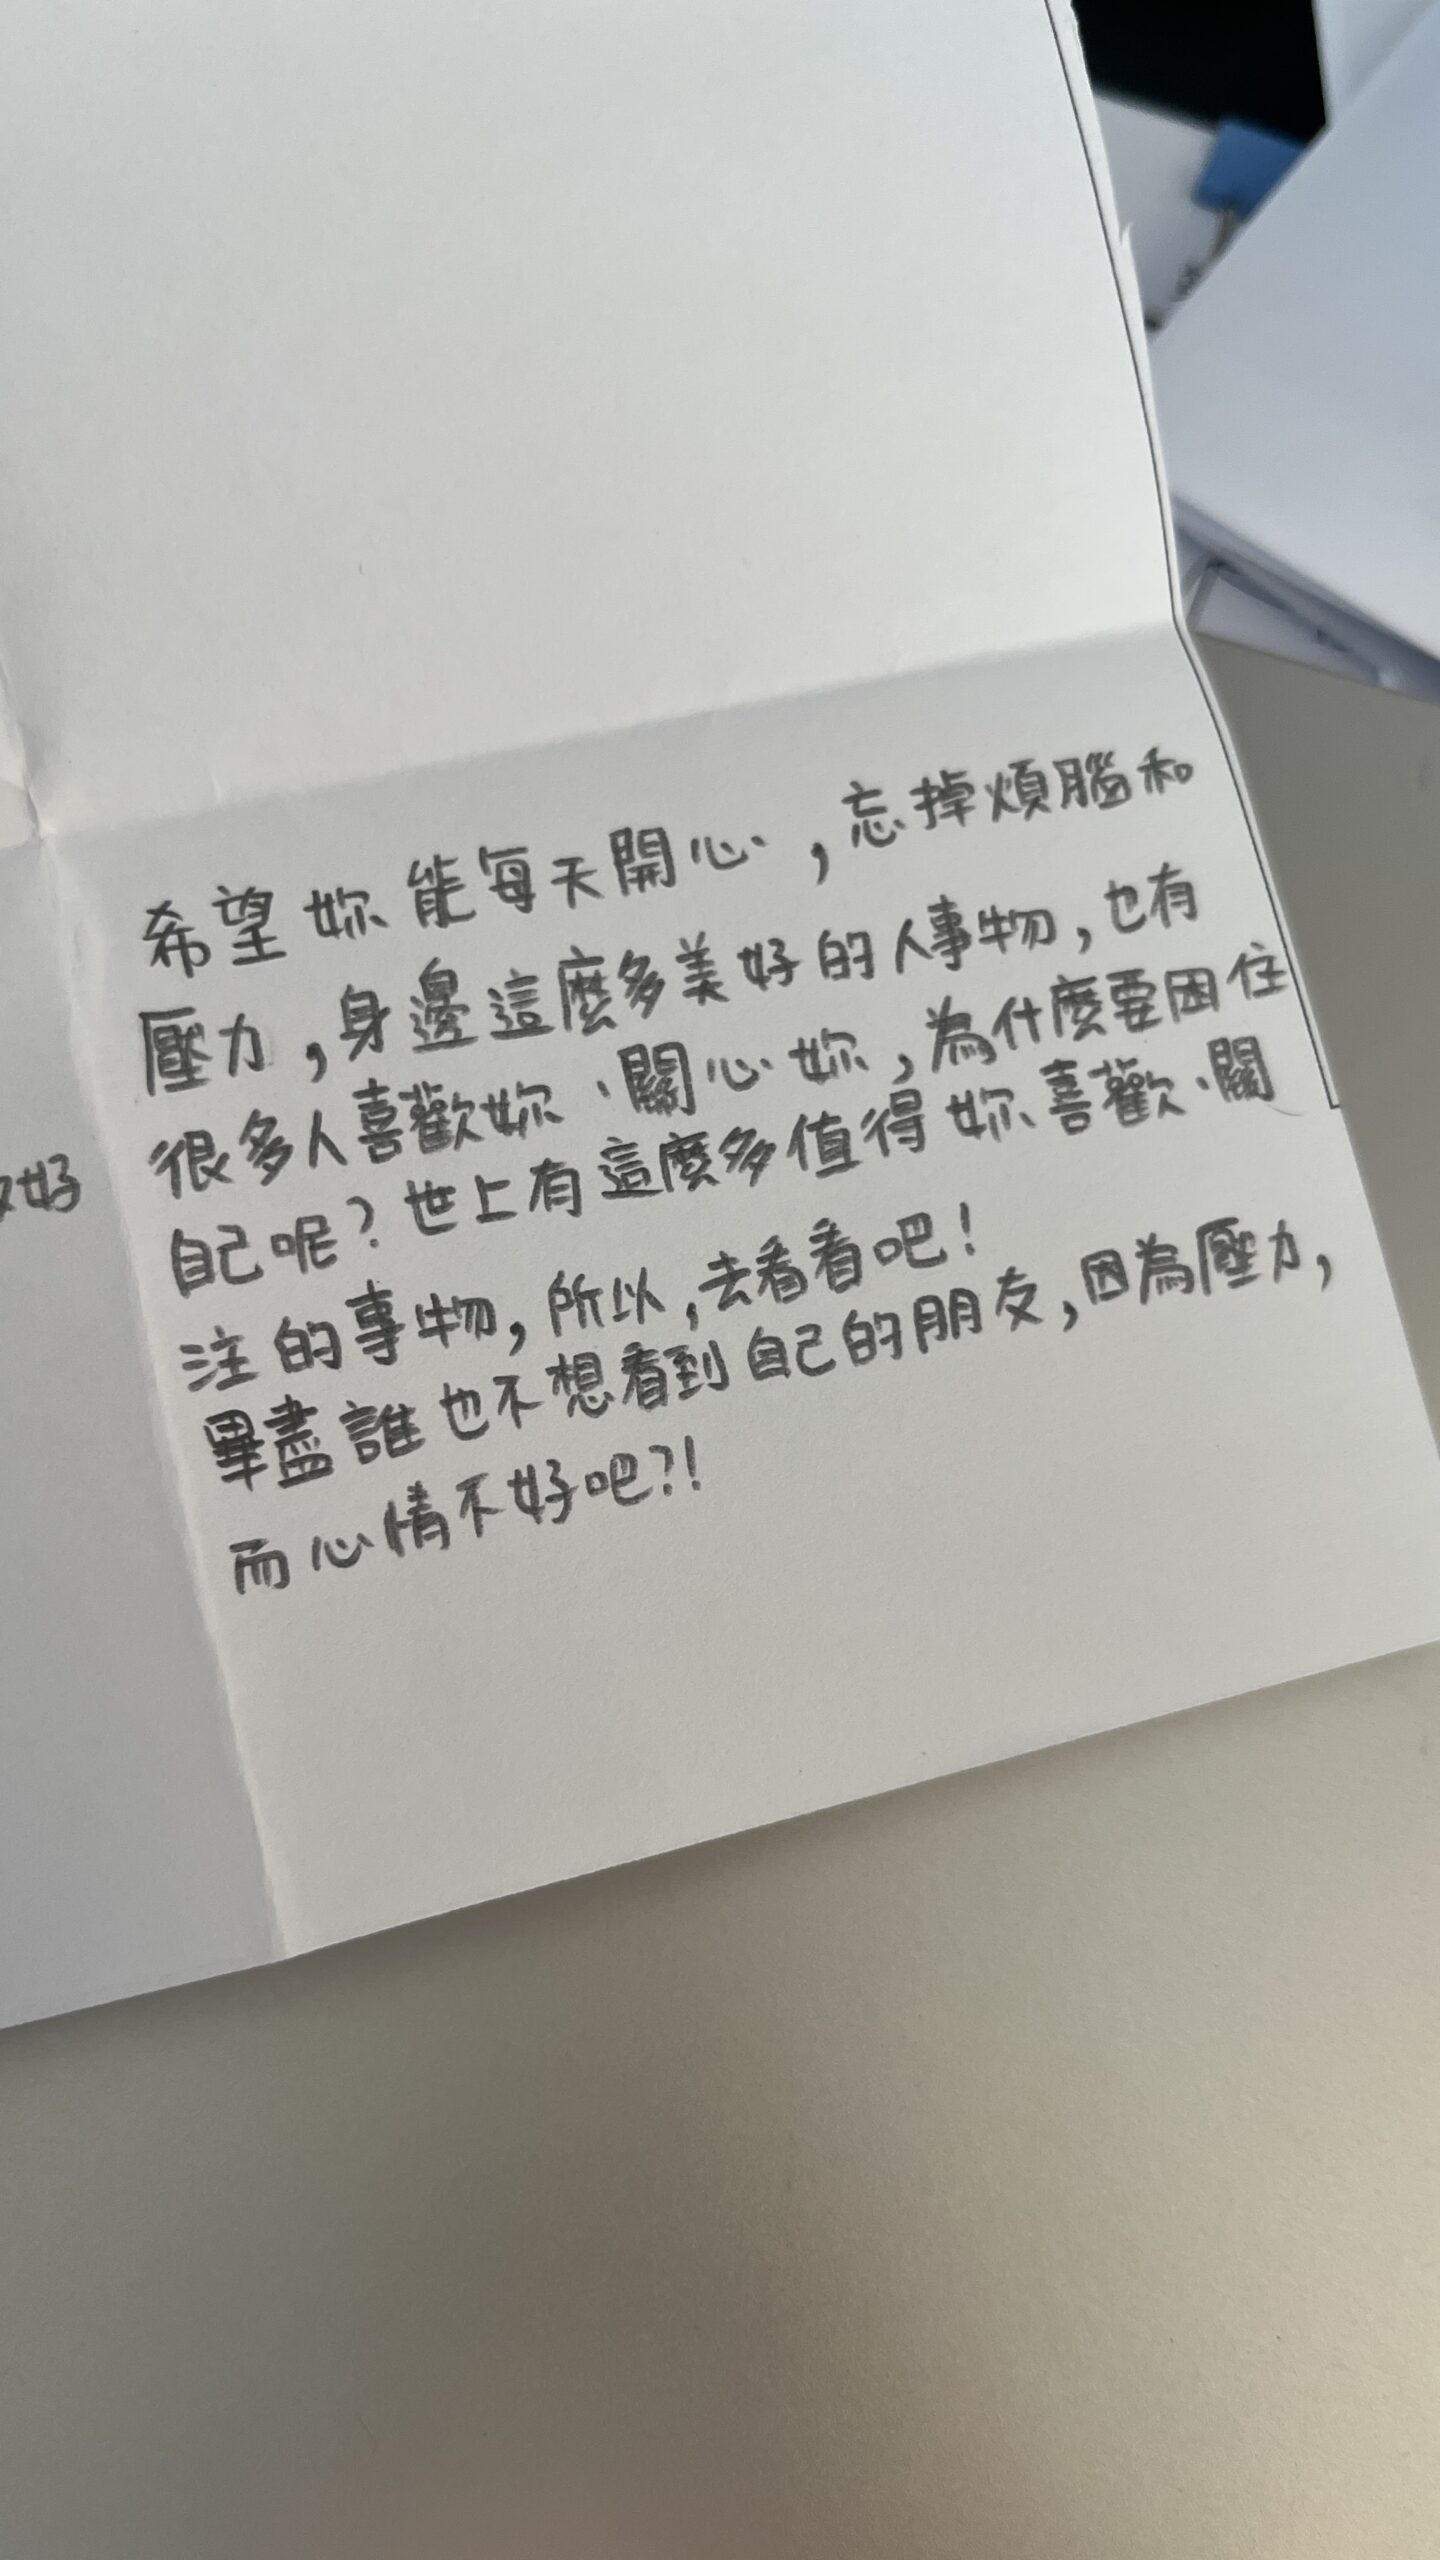 希望妳能每天開心，忘掉煩腦和
壓力，身邊這麼多美好的人事物，也有
很多人喜歡妳、關心妳，為什麼要困住
自己呢？世上有這麼多值得妳喜歡、關
注的事物，所以，去看看吧！
畢盡誰也不想看到自己的朋友，因為壓力，
而心情不好吧？！
好